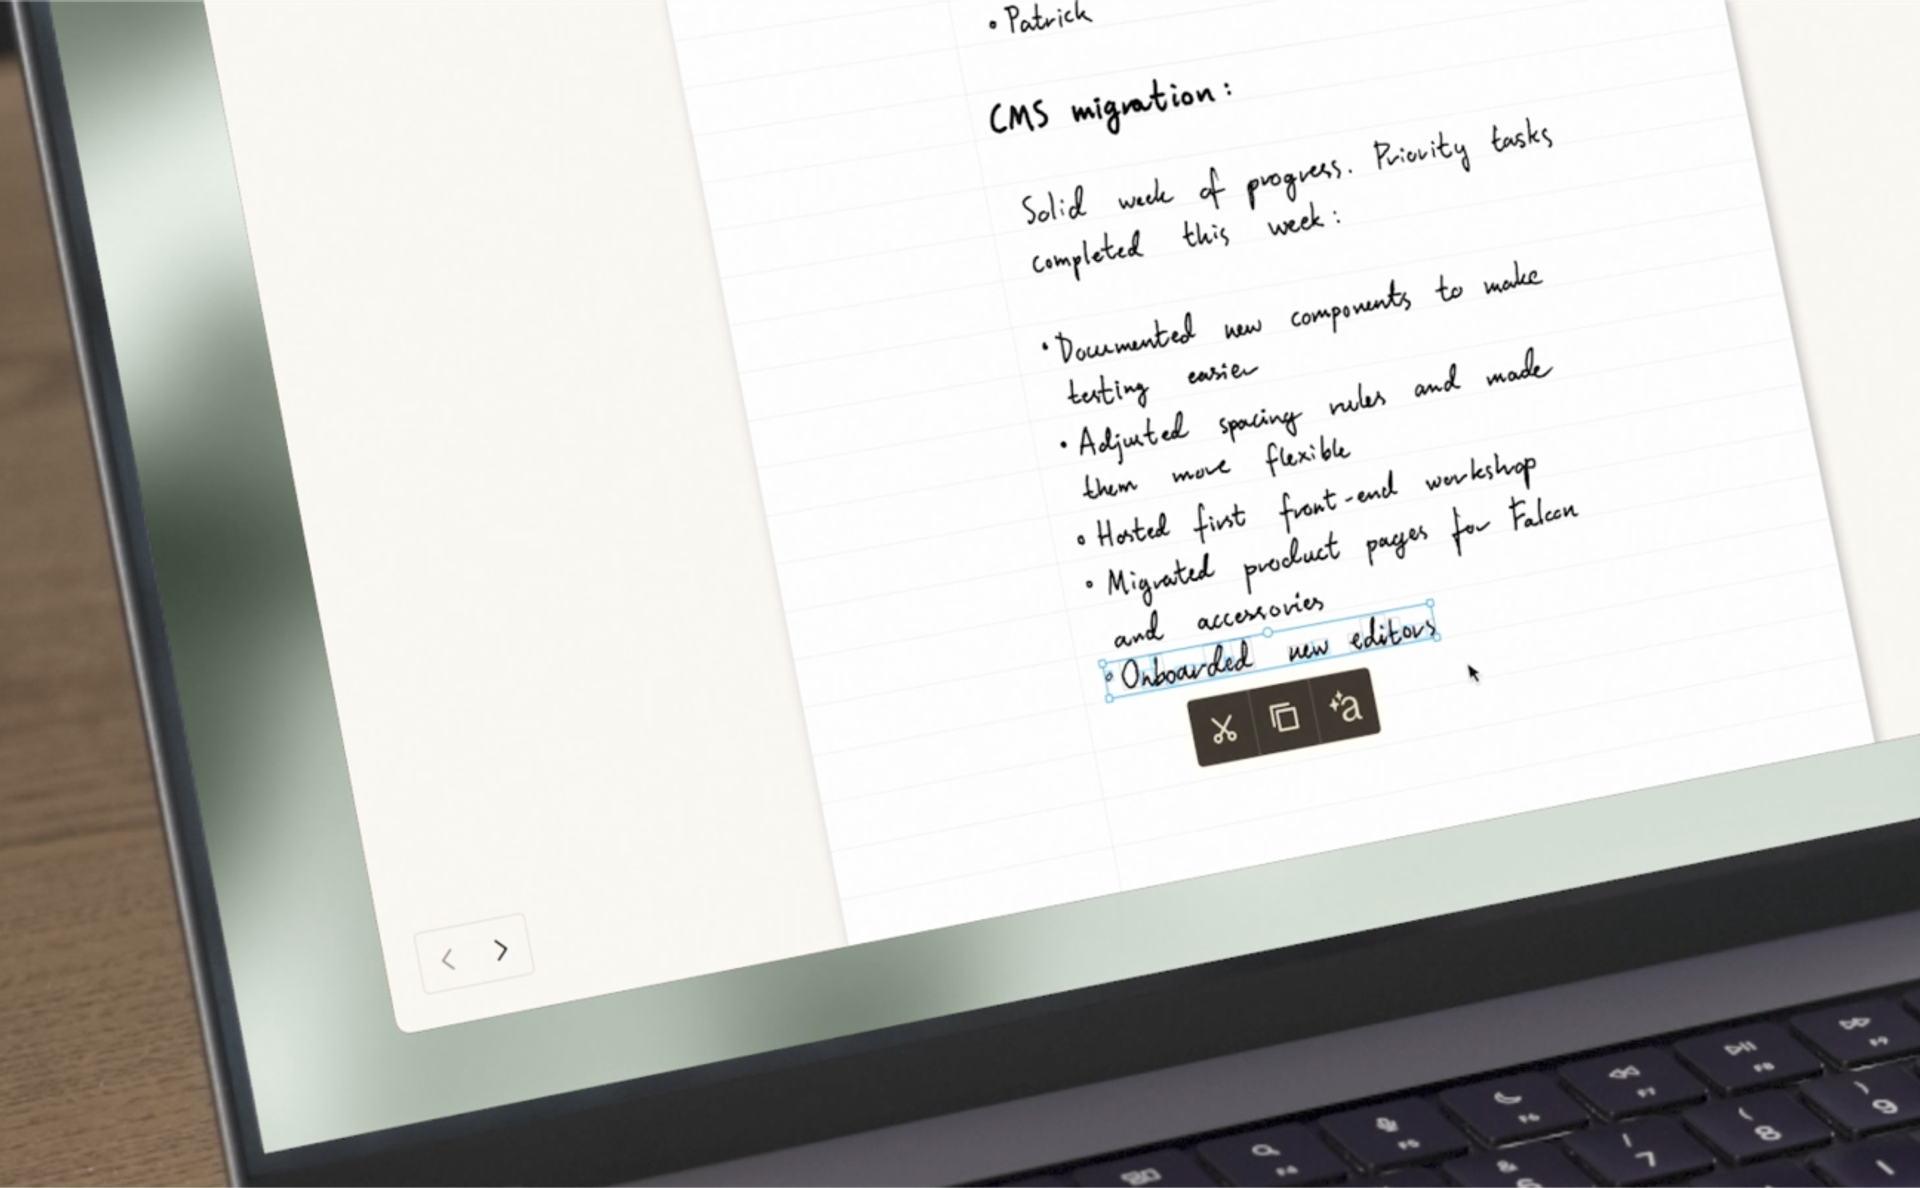 • Patrick
CMS migration:
Solid week of progress. Priority tasks
completed this week:
• Documented new components to make
testing easier
• Adjusted spacing rules and made
them more flexible
• Hosted first front-end workshop
• Migrated product pages for Falcon
and accessories
• Onboarded new editors
a
F4
F5
F6
F7
F8
F9
7
( 8
) 9
&